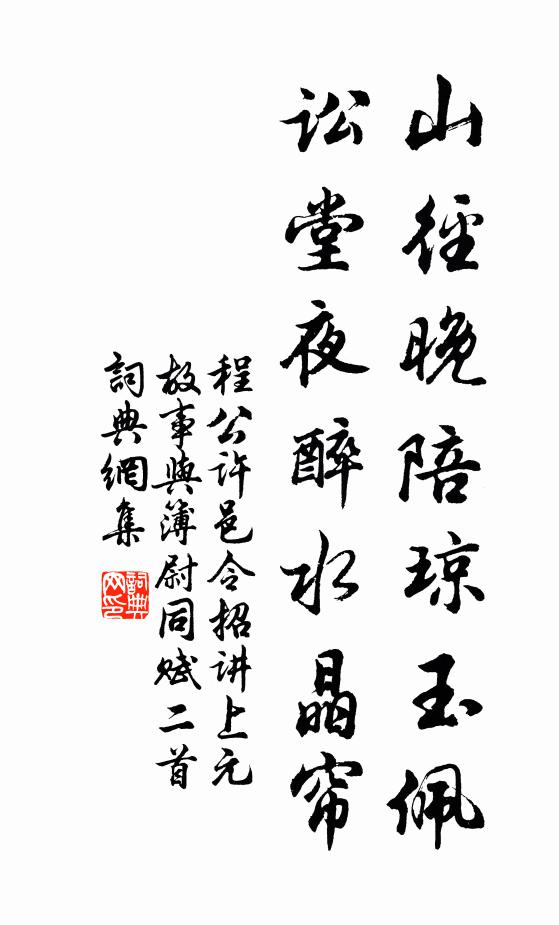 山徑晚陪琼玉佩
讼堂夜醉水晶帘
程公许邑令招讲上元
故事與簿尉同赋二首
詞典網集
詞典网印